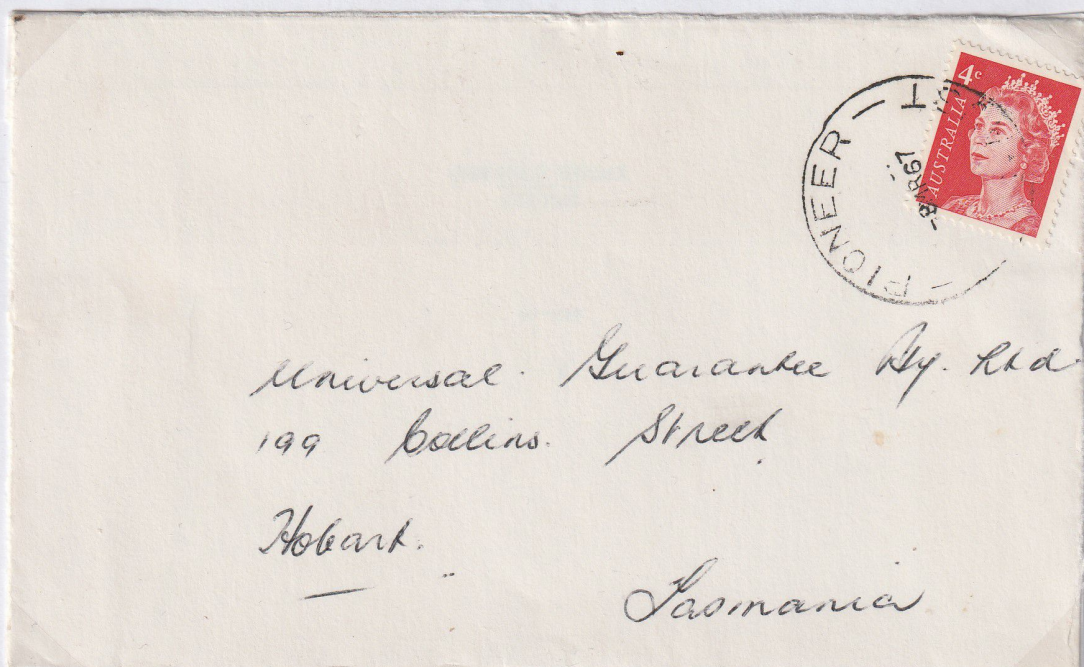 4c
AUSTRALIA
PIONEER
Universal. Guarantee Pty. Ltd
199 Collins. Street
Hobart.
Tasmania